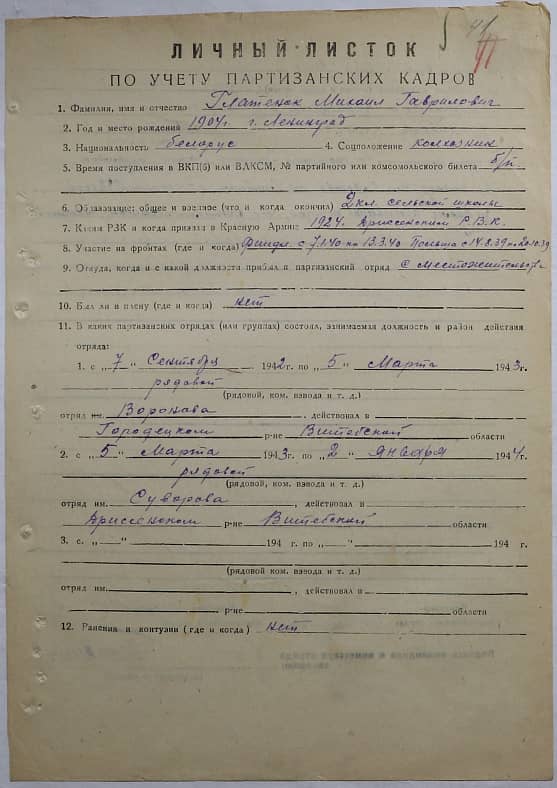 41
ЛИЧНЫЙ ЛИСТОК
ПО УЧЕТУ ПАРТИЗАНСКИХ КАДРОВ
1. Фамилия, имя и отчество Глатенок Михаил Гаврилович
2. Год и место рождений 1904г. г. Ленинград
3. Национальность белорус 4. Соцположение колхозник
5. Время поступления в ВКП(б) или ВЛКСМ, № партийного или комсомольского билета б/п
6. Образование: общее и военное (что и когда окончил) 2 кл. сельской школы
7. Каким РЗК и когда призван в Красную Армию 1924г. Дриссенским Р.В.К.
8. Участие на фронтах (где и когда) Финдл. с 7.1.40 по 13.3.40 Польша с 14.8.39 по 20.10.39
9. Откуда, когда и с какой должности прибыл в партизанский отряд С местожительства
10. Был ли в плену (где и когда) нет
11. В каких партизанских отрядах (или группах) состоял, занимаемая должность и район действия
отряда:
1. с „7„ Сентября 1942г. по „5" Марта 1943г.
рядовой
(рядовой, ком. взвода и т. д.)
отряд им. Воронова, действовал в
Городецком р-не Витебской области
2. с „5" Марта 1943г. по „2" января 1944г.
рядовой
(рядовой, ком. взвода и т. д.)
отряд им. Суворова, действовал в
Дриссенском р-не Витебской области
3. с „—" 194 г. по „—" 194 г.
(рядовой ком. взвода и т. д.)
отряд им., действовал в
р-не области
12. Ранения и контузии (где и когда) нет